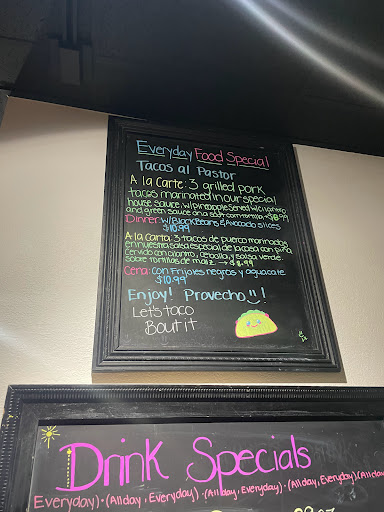 Everyday Food Special
Tacos al Pastor
A la Carte: 3 grilled pork
tacos marinated in our special
house sauce w/ pineapple served w/ cilantro
and green sauce on a soft corn tortilla. $8.99
Dinner: w/ Black Beans & Avocado slices
$10.99
A la Carta: 3 tacos de puerco marinados
en nuestra salsa especial de tacos con piña
Servido con cilantro, cebolla, y salsa verde.
Sobre tortillas de maiz. → $8.99
Cena: con Frijoles negros y aguacate
$10.99
Enjoy! Provecho!
Let's taco
Bout it
Drink Specials
Everyday) • (All day, Everyday) • (All day, Everyday) • (All day, Everyday) • (All day